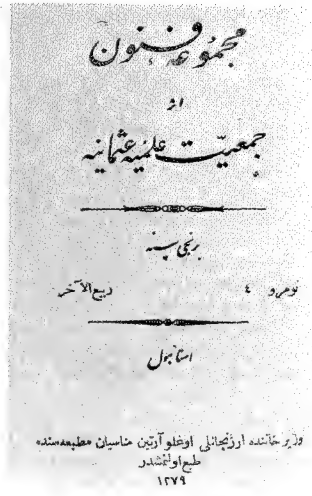 مجموعهٔ فنون
اثر
جمعیّت علمیهٔ عثمانیه
برنجی سنه
نومرو ٤ ربیع الآخر
استانبول
وزیر خاننده ارزنجانلی اوغلو آرتین مناسیان مطبعه‌سنده
طبع اولنمشدر
١٢٧٩